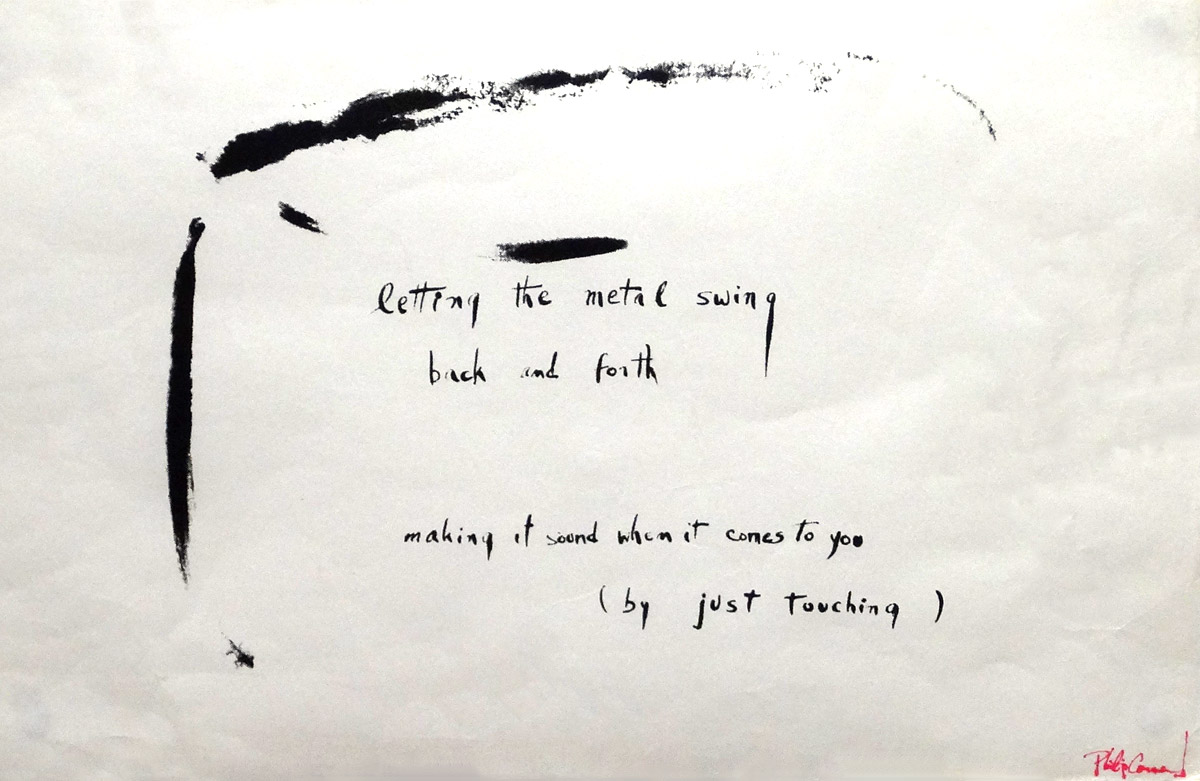 letting the metal swing
back and forth
making it sound when it comes to you
(by just touching)